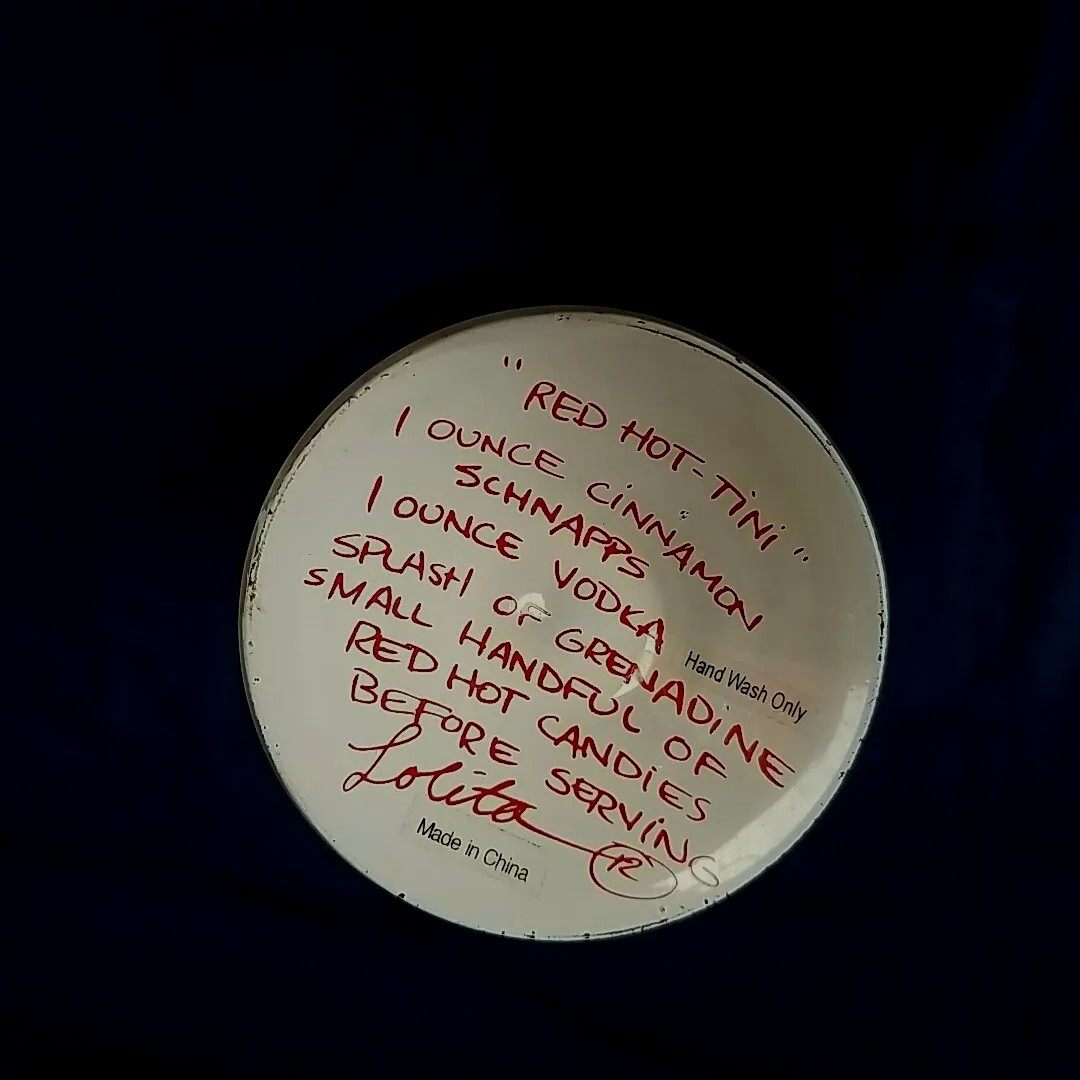 "RED HOT-TiNi"
1 OUNCE CiNNAMON
SCHNAPPS
1 OUNCE VODKA
SPLASH OF GRENADiNE
SMALL HANDFUL OF
RED HOT CANDiES
BEFORE SERViNG
Lolita
Hand Wash Only
Made in China